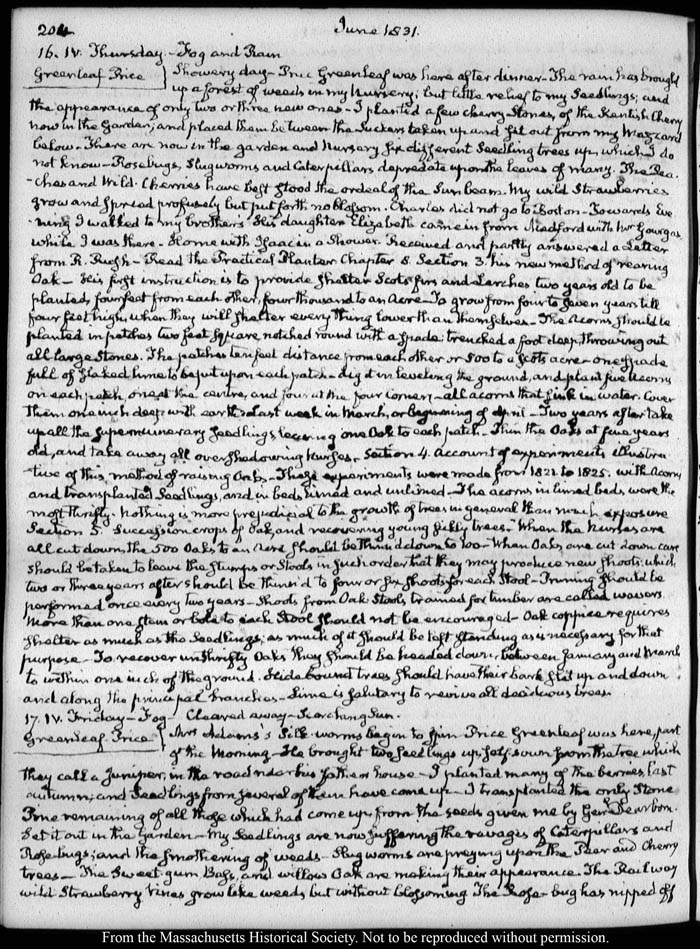 204
June 1831.
16. IV. Thursday. - Fog and Rain
Greenleaf Price
Showery day - Price Greenleaf was here after dinner - The rain has brought
up a forest of weeds in my Nursery; but little relief to my Seedlings; and
the appearance of only two or three new ones - I planted a few cherry Stones, of the Kentish Cherry
now in the Garden; and placed them between the Suckers taken up and set out from my Mazzard
below - There are now in the garden and Nursery six different Seedling trees up, which I do
not know - Rosebugs, Slugworms and Caterpillars depredate upon the leaves of many. The Pea-
-ches and Wild-Cherries have best stood the ordeal of the Sun beam. My wild Strawberries
grow and spread profusely but put forth no blossom. Charles did not go to Boston - Towards Eve
ning I walked to my brother's - His daughter Elizabeth came in from Medford with Mr Gourgas,
while I was there - Home with Isaac in a Shower. Received and partly answered a Letter
from R. Rush - Read the Practical Planter Chapter 8. Section 3. his new method of rearing
Oak - His first instruction is to provide shelter Scots firs and Larches two years old to be
planted, four feet from each other, four thousand to an Acre - To grow from four to seven years till
four feet high, when they will shelter every thing lower than themselves - The Acorns should be
planted in patches two feet square notched round with a spade; trenched a foot deep, throwing out
all large stones. The patches ten feet distance from each other or 500 to a Scots acre - one spade
full of slaked lime to be put upon each patch - dig it in leveling the ground, and plant five Acorns
on each patch, one at the centre, and four at the four corners - all acorns that sink in water. Cover
them one inch deep with earth; last week in March, or beginning of April - Two years after take
up all the supernumerary Seedlings leaving one Oak to each patch - Thin the Oaks at five years
old, and take away all overshadowing Nurses. Section 4. Account of experiments illustra-
tive of this method of raising Oaks - These experiments were made from 1821 to 1825. with Acorns
and transplanted Seedlings, and in beds limed and unlimed - The acorns in limed beds were the
most thrifty. Nothing is more prejudicial to the growth of trees in general than much exposure
Section 5. Succession crops of Oak, and recovering young sickly trees - When the Nurses are
all cut down, the 500 Oaks to an Acre should be thinn'd down to 200 - When Oaks are cut down care
should be taken to leave the Stumps or Stools in such order that they may produce new shoots: which
two or three years after should be thinn'd to four or six shoots for each Stool - Pruning should be
performed once every two years - Shoots from Oak Stools, trained for timber are called wavers.
More than one stem or bole to each Stool should not be encouraged - Oak coppice requires
shelter as much as the Seedlings; as much of it should be left standing as is necessary for that
purpose - To recover unthrifty Oaks they should be headed down, between January and March
to within one inch of the ground. Hidebound trees should have their bark slit up and down
and along the principal branches - Lime is salutary to revive all deciduous trees.
17. IV. Friday - Fog - Cleared away - Scorching Sun.
Greenleaf Price
Mrs Adams's Silk-worms began to spin - Price Greenleaf was here, part
of the Morning - He brought two seedlings up, self sown from the tree which
they call a Juniper, in the road near his father's house - I planted many of the berries, last
autumn; and Seedlings from several of them have come up - I transplanted the only Stone
Pine remaining of all those which had come up from the seeds given me by Genl Dearborn.
Set it out in the Garden - My Seedlings are now suffering the ravages of Caterpillars and
Rose-bugs; and the smothering of weeds - Slug worms are preying upon the Pear and Cherry
trees - The Sweet-gum Bugs, and willow Oak are making their appearance. The Railway
wild Strawberry Vines grow like weeds but without blossoming The Rose-bug has nipped off
From the Massachusetts Historical Society. Not to be reproduced without permission.